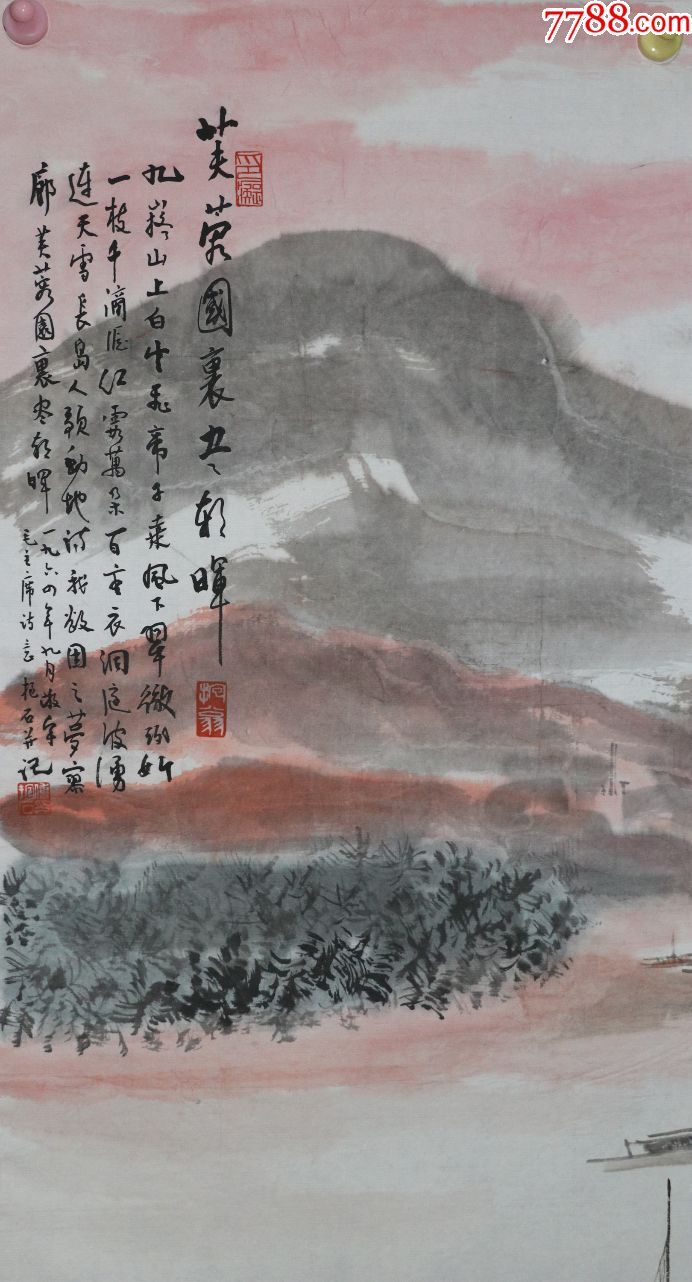 7788.com
芙蓉國裏尽朝暉
九嶷山上白雲飛帝子乘風下翠微斑竹
一枝千滴泪红霞萬朵百重衣洞庭波湧
連天雪長島人歌動地诗我欲因之夢寥
廓芙蓉國裏尽朝暉一九六四年九月敬写
毛主席诗意抱石并记